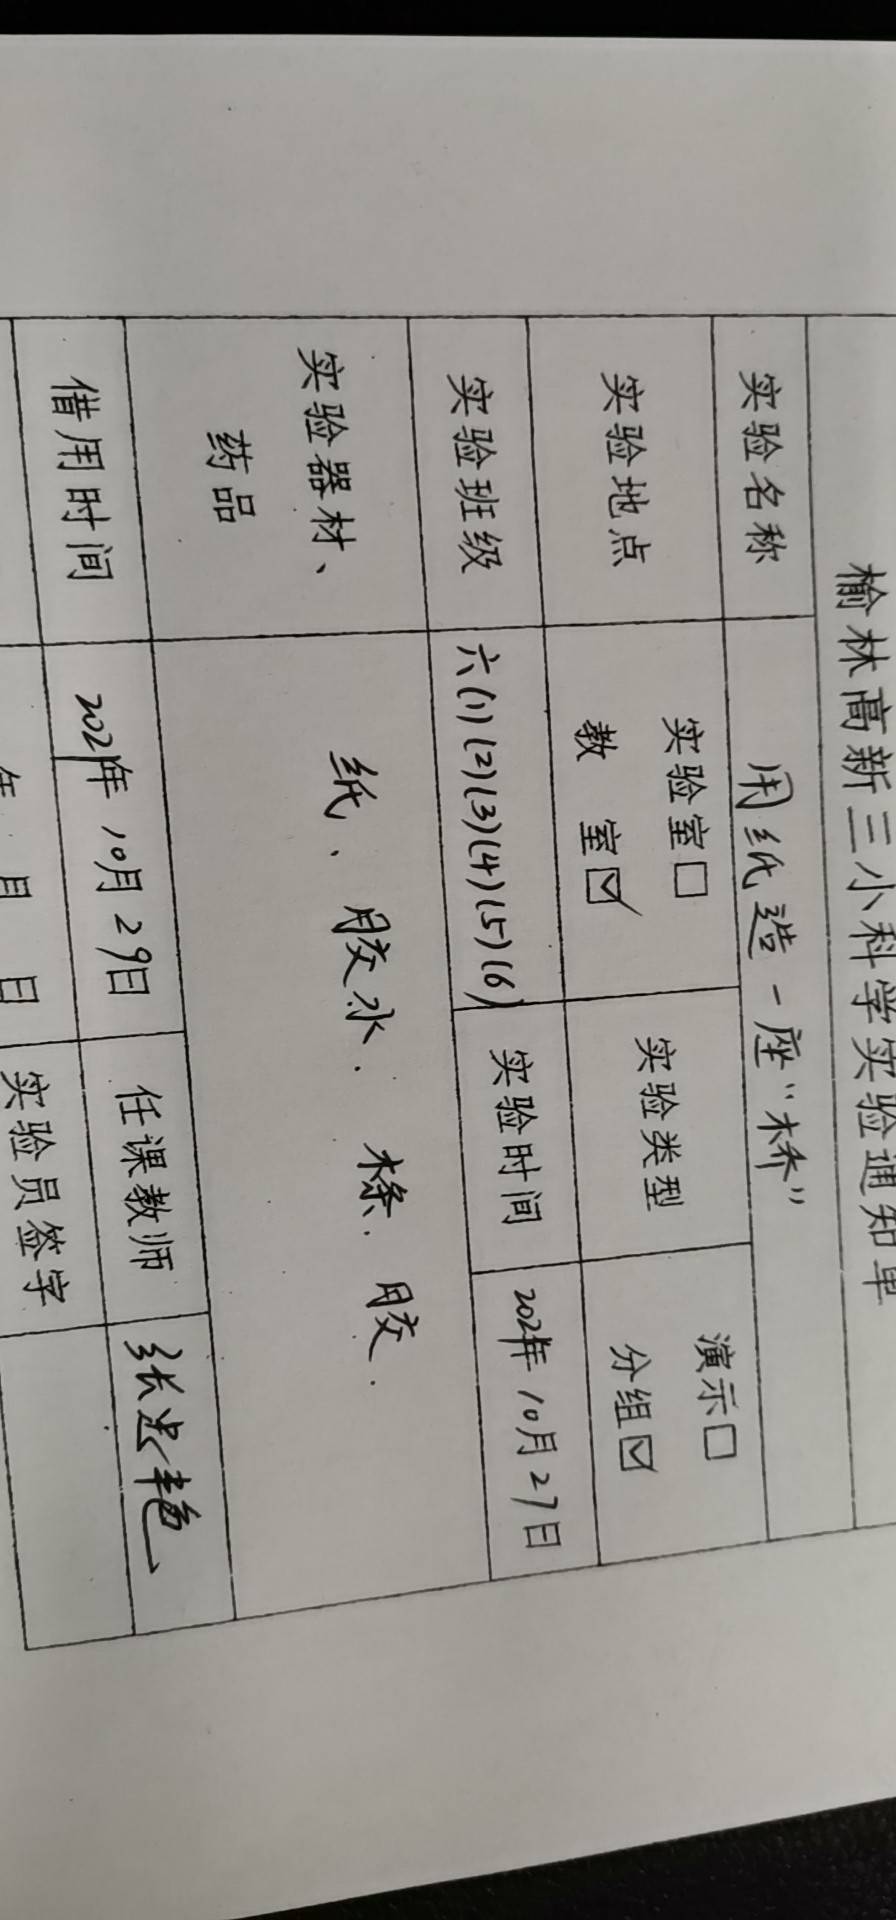 榆林高新三小科学实验通知单
实验名称 用纸造一座“桥”
实验地点 实验室☐ 教 室☑ 实验类型 演示☐ 分组☑
实验班级 六(1)(2)(3)(4)(5)(6) 实验时间 2021年10月27日
实验器材、药品 纸、胶水. 木条. 胶.
借用时间 2021年10月29日 任课教师 张
年 月 日 实验员签字